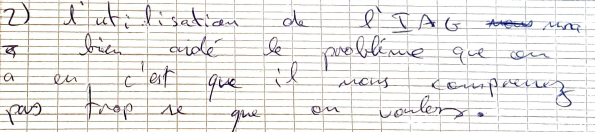 2) l'utilisation de l'IAG nous nna
a bien aidé le problème que on
a eu c'est que il nous comprenez
pas trop se que on voulers.